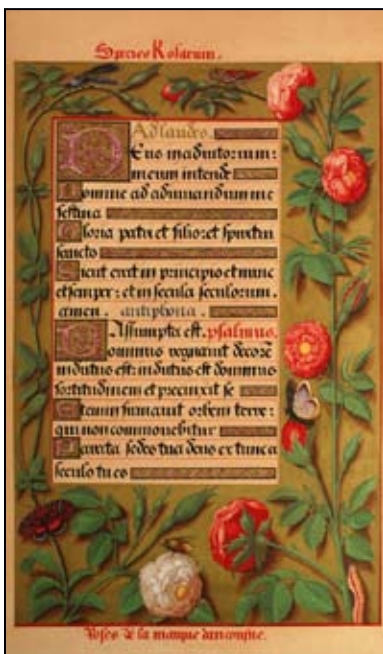 Species Rosarum.
Ad laudes.
Deus in adiutorium:
meum intende
Domine ad adiuuandum me
festina
Gloria patri et filio: et spiritui
sancto
Sicut erat in principio et nunc
et semper: et in secula seculorum.
amen. antiphona.
Assumpta est. psalmus.
Dominus regnauit decorē
indutus est: indutus est dominus
fortitudinem et precinxit se
Etenim firmauit orbem terre:
qui non commouebitur
Parata sedes tua deus ex tunc a
seculo tu es
Roses de la